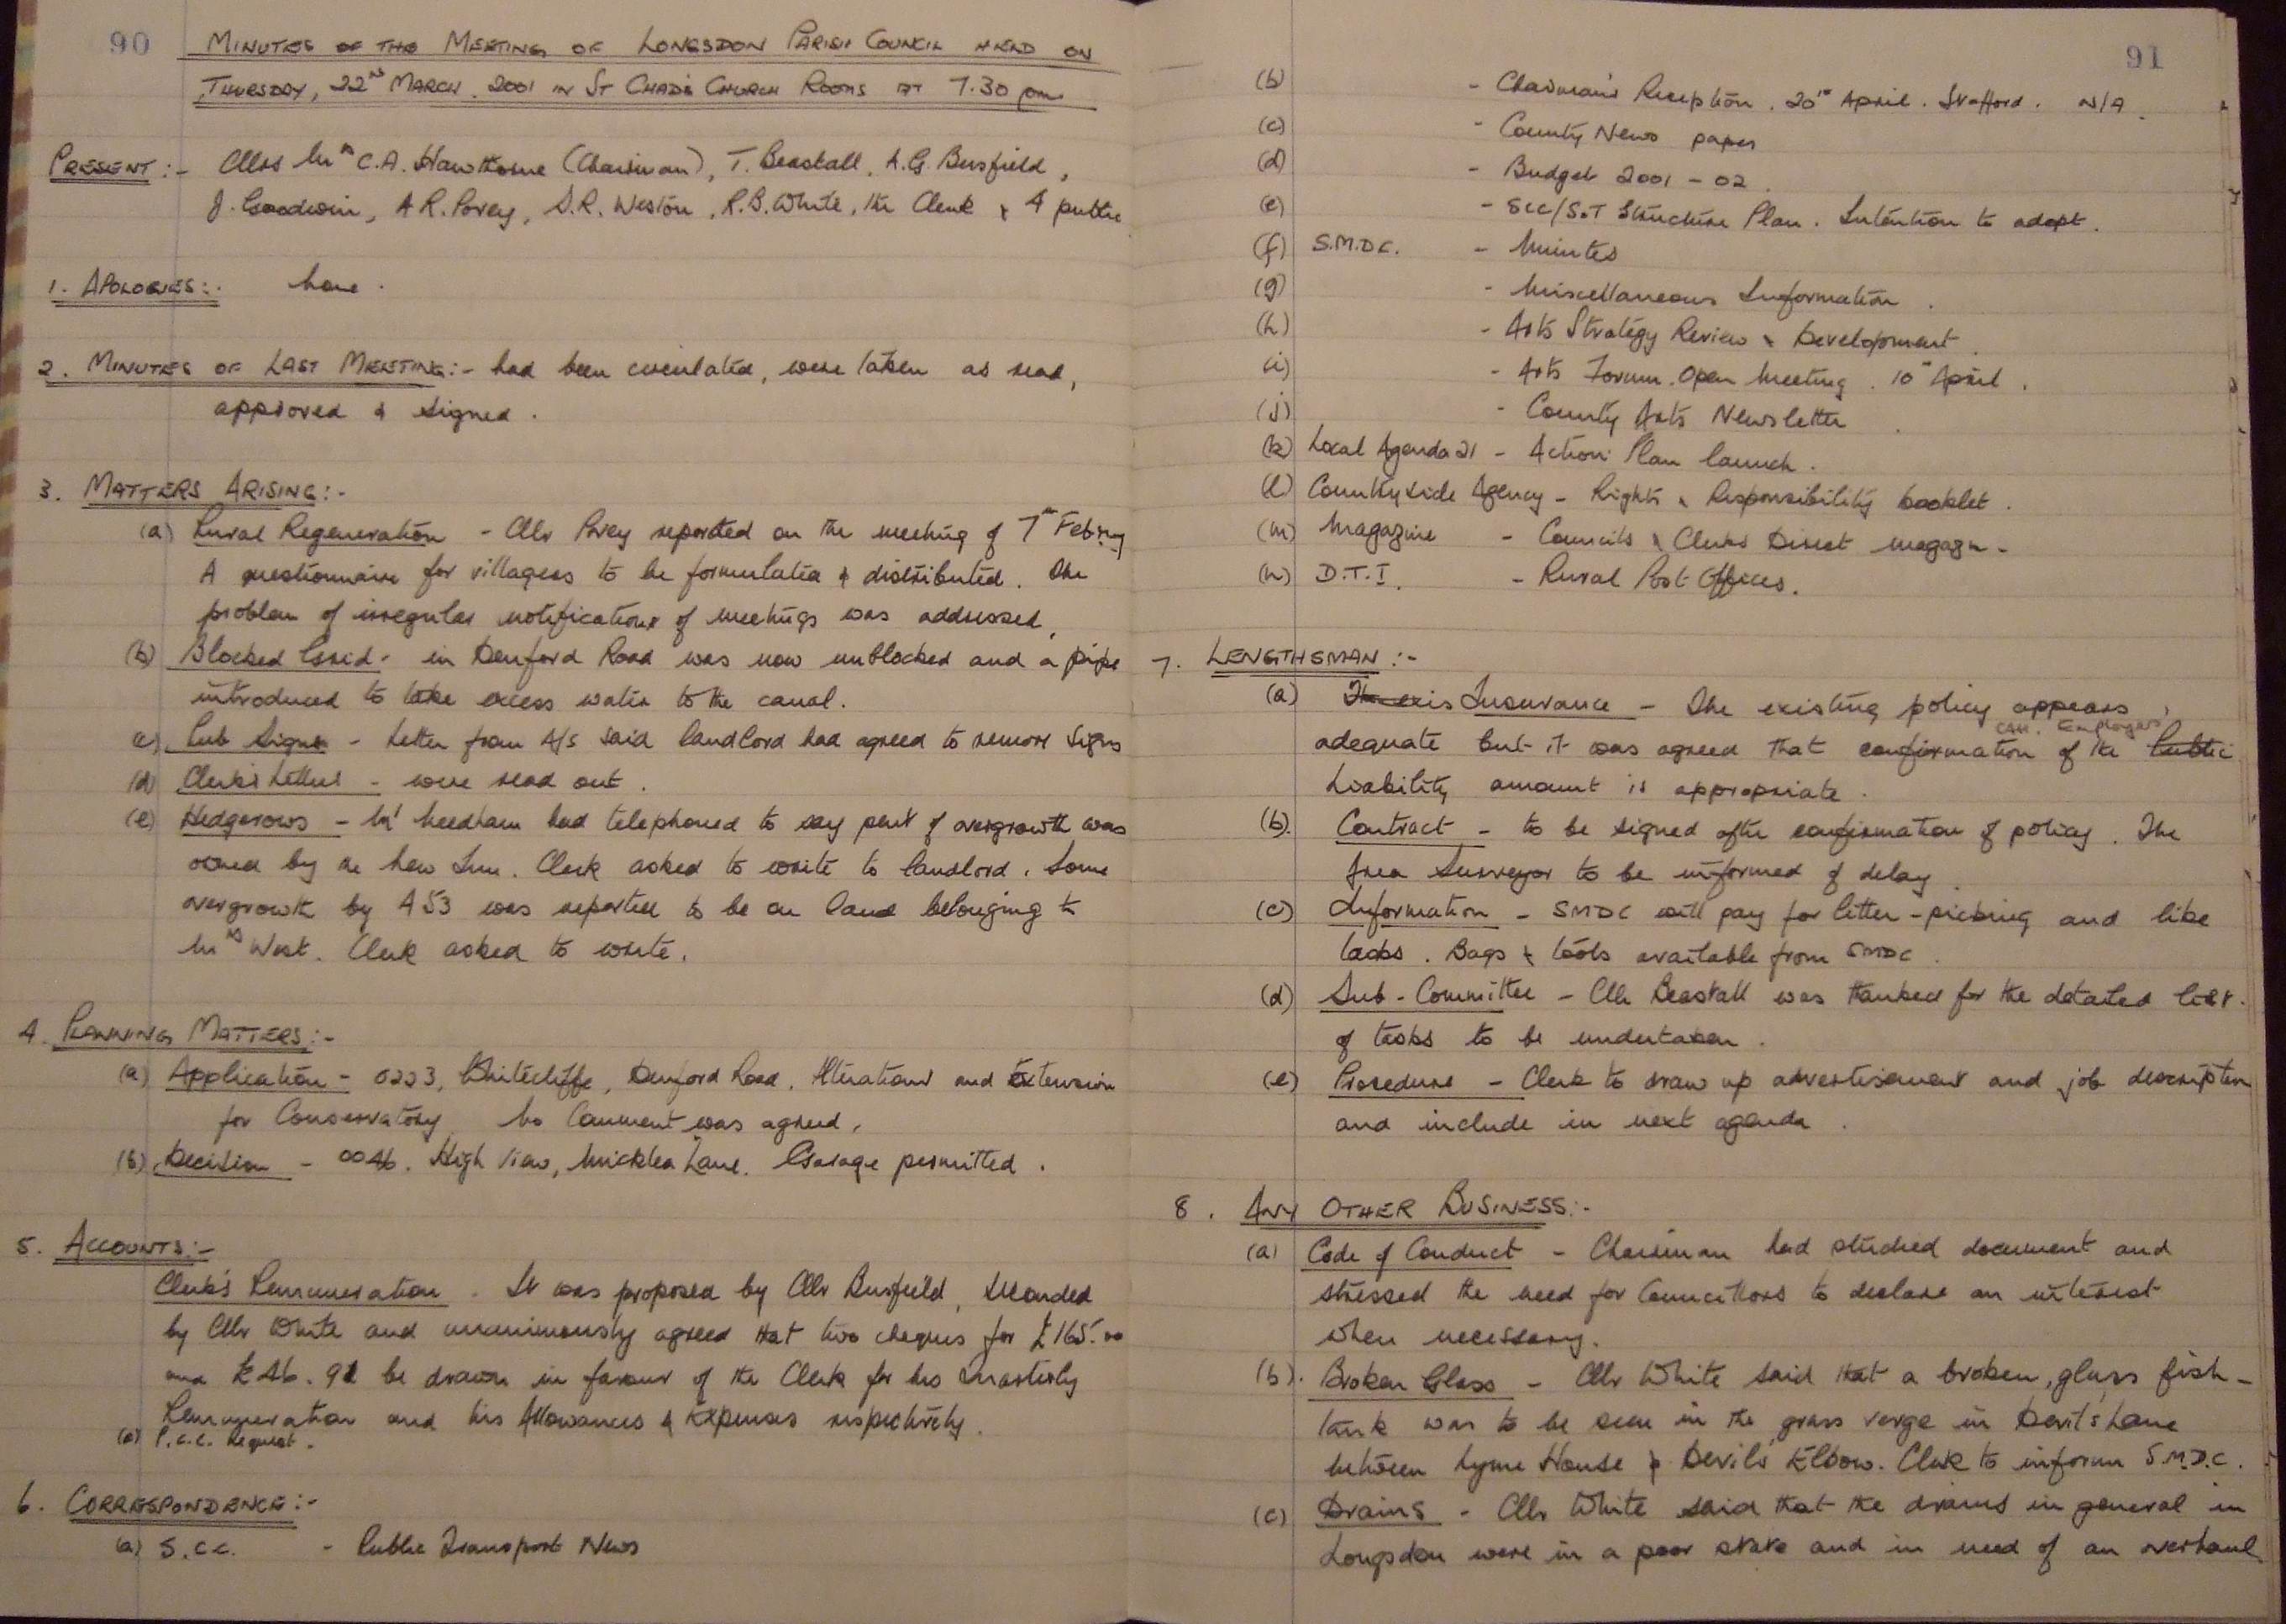 90
MINUTES OF THE MEETING OF LONGSDON PARISH COUNCIL HELD ON
THURSDAY, 22ND MARCH. 2001 IN ST CHAD'S CHURCH ROOMS AT 7.30 pm
PRESENT :- Cllrs Mrs C.A. Hawthorne (Chairman), T. Beastall, A.G. Busfield,
J. Goodwin, A R. Povey, D.R. Weston, R.B. White, the Clerk & 4 public
1. APOLOGIES :- None.
2. MINUTES OF LAST MEETING :- had been circulated, were taken as read,
approved & signed.
3. MATTERS ARISING :-
(a) Rural Regeneration - Cllr Povey reported on the meeting of 7th Feb'ry
A questionnaire for villagers to be formulated & distributed. The
problem of irregular notifications of meetings was addressed.
(b) Blocked Grid - in Denford Road was now unblocked and a pipe
introduced to take excess water to the canal.
(c) Pub Signs - Letter from A/S said landlord had agreed to remove signs
(d) Clerk's Letters - were read out.
(e) Hedgerows - Mr Needham had telephoned to say part of overgrowth was
owned by the New Inn. Clerk asked to write to landlord. Some
overgrowth by A53 was reported to be on land belonging to
Mrs West. Clerk asked to write.
4. PLANNING MATTERS :-
(a) Application - 0223, Whitecliffe, Denford Road. Alterations and Extension
for Conservatory. No Comment was agreed.
(b) Decision - 0046. High View, Micklea Lane. Garage permitted.
5. ACCOUNTS :-
Clerk's Remuneration. It was proposed by Cllr Busfield, seconded
by Cllr White and unanimously agreed that two cheques for £165.00
and £46.91 be drawn in favour of the Clerk for his Quarterly
Remuneration and his Allowances & Expenses respectively.
(a) P.C.C. Request.
6. CORRESPONDENCE :-
(a) S.C.C. - Public Transport News
91
(b) - Chairman's Reception. 20th April. Stafford. N/A.
(c) - County News paper
(d) - Budget 2001 - 02.
(e) - SCC/S.T Structure Plan. Intention to adopt.
(f) S.M.D.C. - Minutes
(g) - Miscellaneous Information.
(h) - Arts Strategy Review & Development.
(i) - Arts Forum. Open Meeting. 10th April.
(j) - County Arts Newsletter
(k) Local Agenda 21 - Action Plan launch.
(l) Countryside Agency - Rights & Responsibility booklet.
(m) Magazine - Councils & Clerks Direct magazn-
(n) D.T.I. - Rural Post Offices.
7. LENGTHSMAN :-
(a) The exis Insurance - The existing policy appears
CAH. Employers
adequate but it was agreed that confirmation of the Public
Liability amount is appropriate.
(b) Contract - to be signed after confirmation of policy. The
Area Surveyor to be informed of delay.
(c) Information - SMDC will pay for litter-picking and like
tasks. Bags & tools available from SMDC.
(d) Sub-Committee - Cllr Beastall was thanked for the detailed list
of tasks to be undertaken.
(e) Procedure - Clerk to draw up advertisement and job description
and include in next agenda.
8. ANY OTHER BUSINESS :-
(a) Code of Conduct - Chairman had studied document and
stressed the need for Councillors to declare an interest
when necessary.
(b). Broken Glass - Cllr White said that a broken, glass fish-
tank was to be seen in the grass verge in Devil's Lane
between Lyme House & Devil's Elbow. Clerk to inform S.M.D.C.
(c) Drains - Cllr White said that the drains in general in
Longsdon were in a poor state and in need of an overhaul.